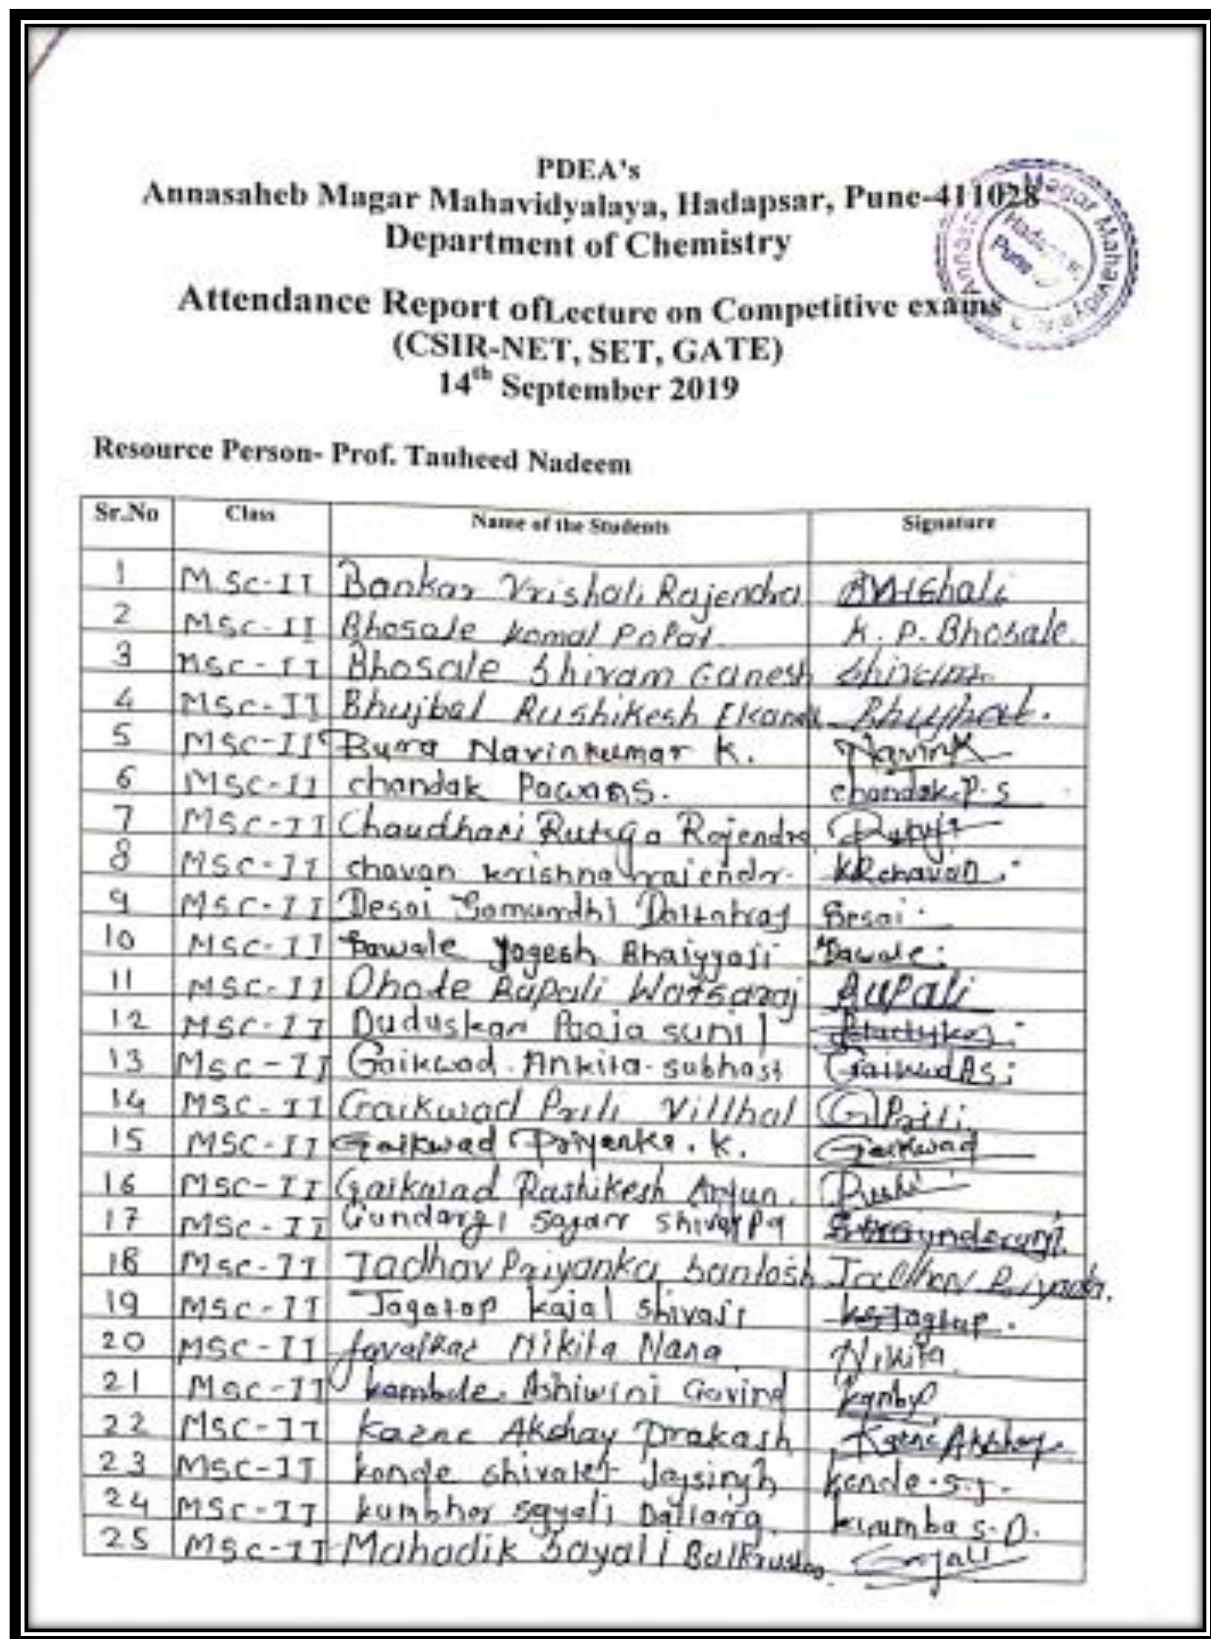 PDEA's
Annasaheb Magar Mahavidyalaya, Hadapsar, Pune-411028
Department of Chemistry
Annasaheb Magar Mahavidyalaya
Hadapsar
Pune
Attendance Report ofLecture on Competitive exams
(CSIR-NET, SET, GATE)
14th September 2019
Resource Person- Prof. Tauheed Nadeem
Sr.No Class Name of the Students Signature
1 M.Sc-II Bankar Vrishali Rajendra Vrishali
2 MSc-II Bhosale Komal Popat. K. P. Bhosale.
3 MSc-II Bhosale Shivam Ganesh Shivam
4 MSc-II Bhujbal Rushikesh Bhujbal.
5 MSc-II Bura Navinkumar K. NavinK
6 MSc-II chandak chandak.P.S
7 MSc-II Chaudhari Rajendra
8 MSc-II chavan krishna rajendr. KRchavan.
9 MSc-II Desai Desai
10 MSc-II Yogesh Bhaiyyaji
11 MSc-II Dhote Rupali Rupali
12 MSc-II Duduskar Pooja sunil
13 MSc-II Gaikwad Ankita subhash GaikwadAs
14 MSc-II Gaikwad Priti Vitthal G Priti.
15 MSc-II Gaikwad Priyanka. K. Gaikwad
16 MSc-II Gaikwad Rushikesh Arjun. Rushi
17 MSc-II Gundargi
18 MSc-II Jadhav Priyanka Santosh Jadhav
19 MSc-II Jagatap kajal shivaji ksJagtap.
20 MSc-II Nikita Nana Nikita
21 MSc-II kamble Ashiwini Govind
22 MSc-II Akshay Prakash Akshay
23 MSc-II konde Jaysingh konde.s.j.
24 MSc-II kumbhar sayali
25 MSc-II Mahadik Sayali Sayali